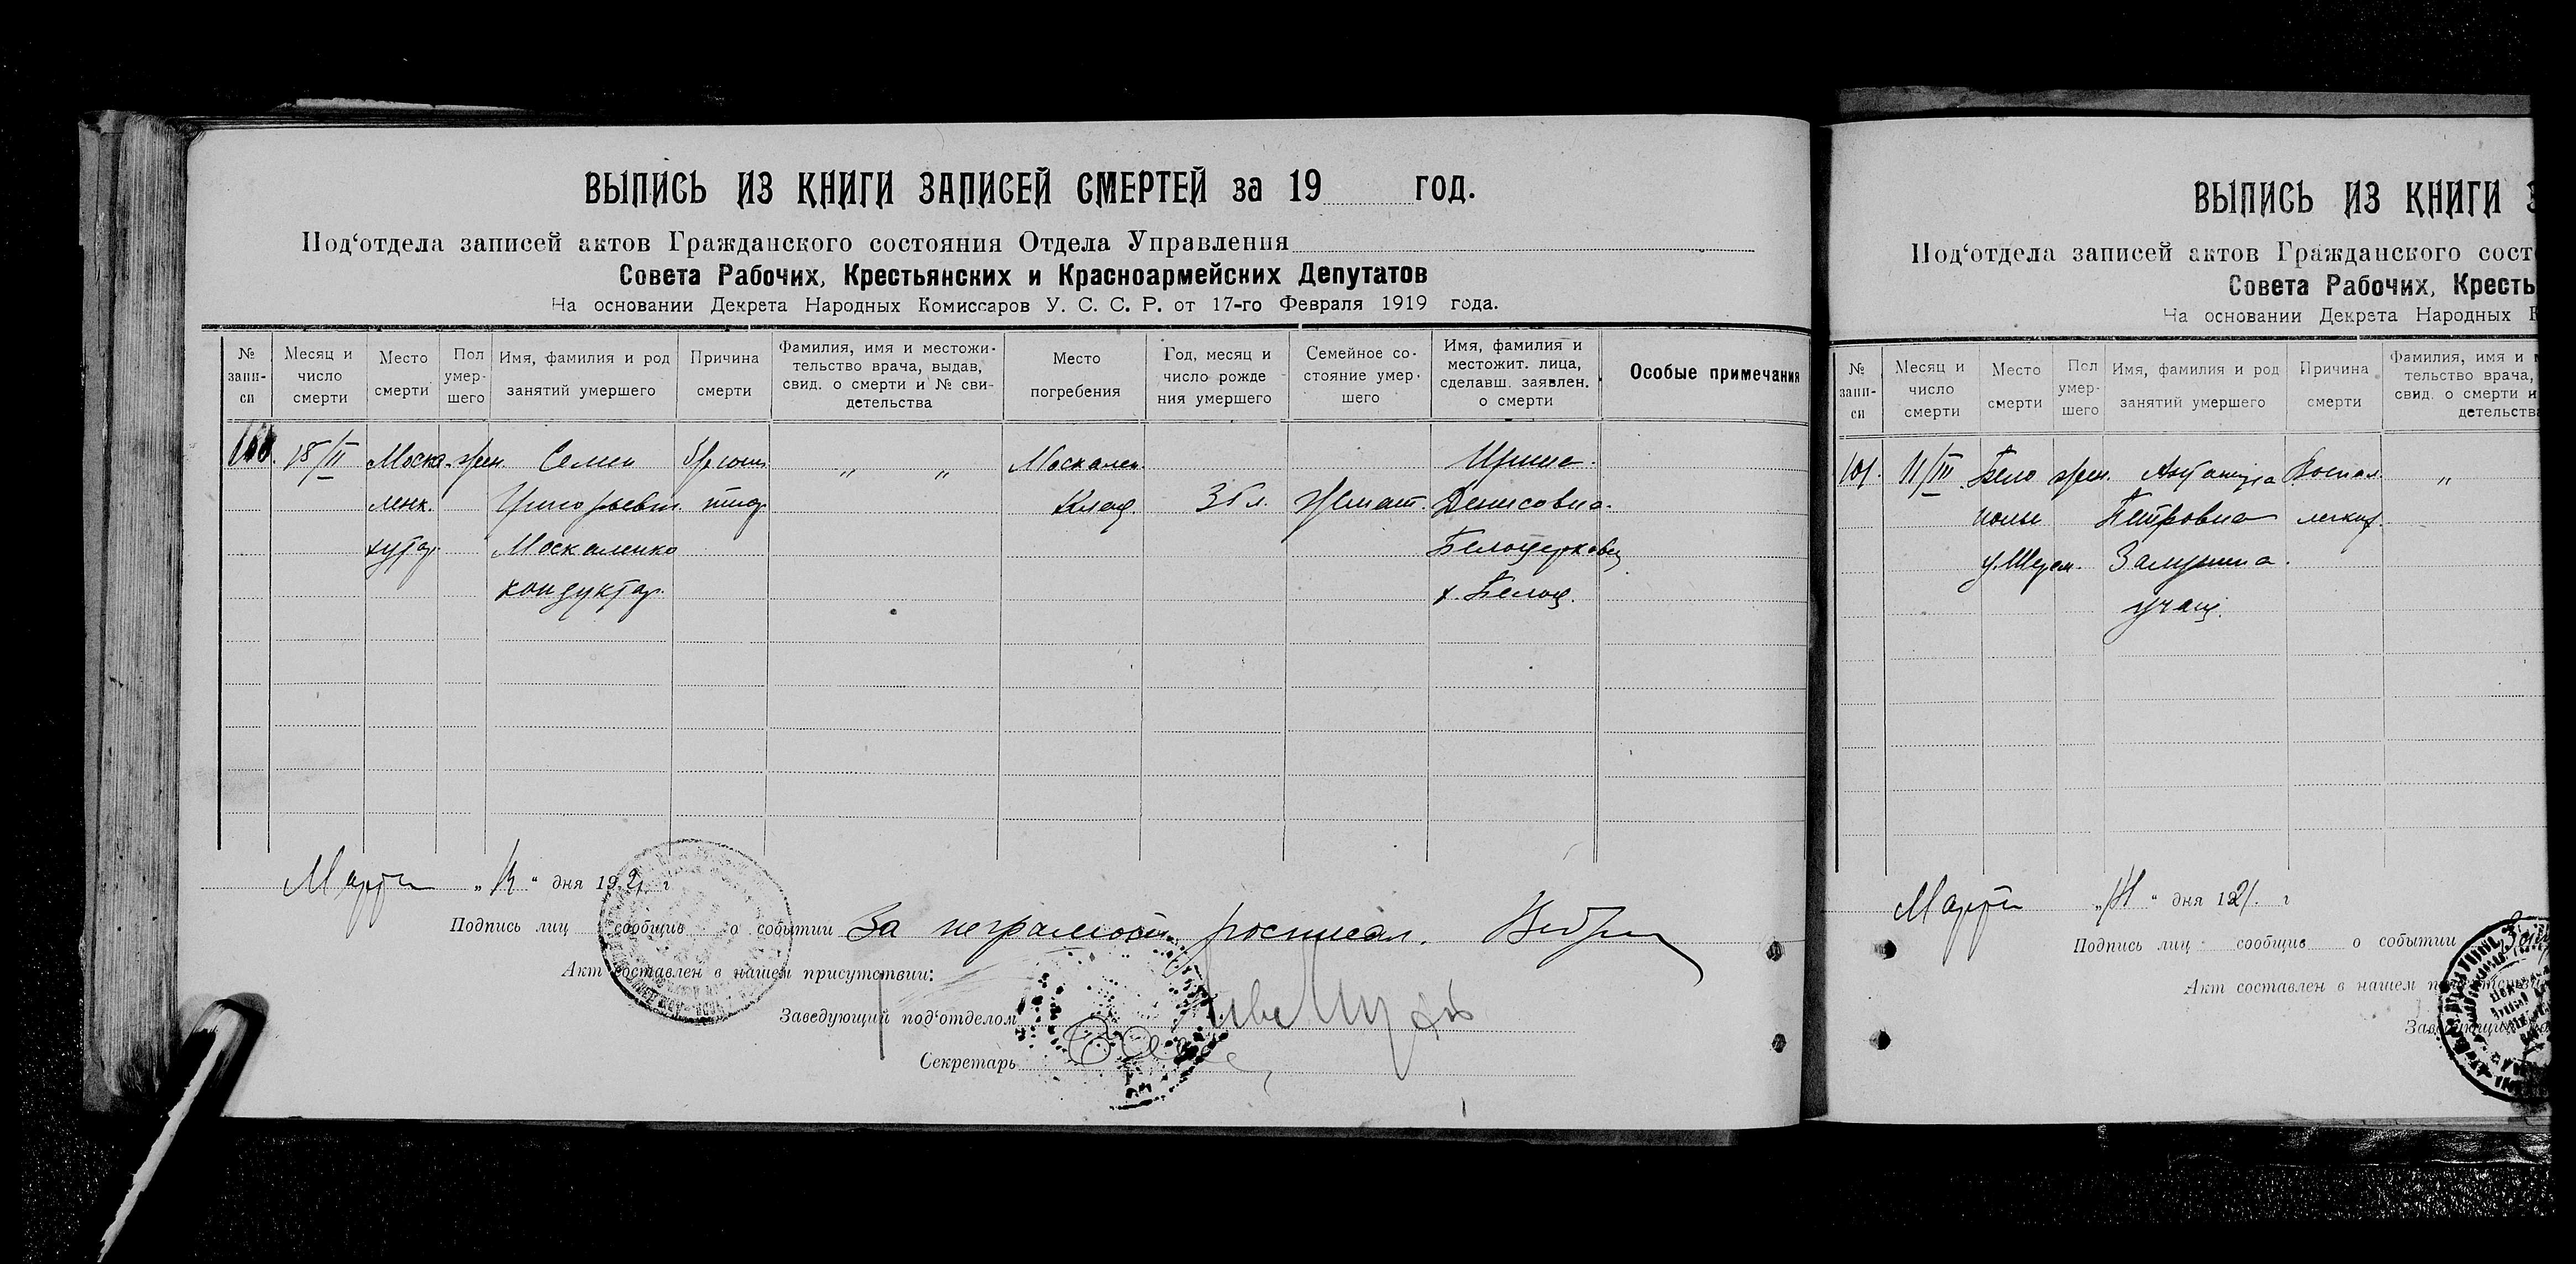 ВЫПИСЬ ИЗ КНИГИ ЗАПИСЕЙ СМЕРТЕЙ за 19 год.
Под‘отдела записей актов Гражданского состояния Отдела Управления
Совета Рабочих, Крестьянских и Красноармейских Депутатов
На основании Декрета Народных Комиссаров У. С. С. Р. от 17-го Февраля 1919 года.
№ запи-си
Месяц и число смерти
Место смерти
Пол умер-шего
Имя, фамилия и род занятий умершего
Причина смерти
Фамилия, имя и местожи-тельство врача, выдав, свид. о смерти и № сви-детельства
Место погребения
Год, месяц и число рожде ния умершего
Семейное со-стояние умер-шего
Имя, фамилия и местожит. лица, сделавш. заявлен. о смерти
Особые примечания
100. 18/II Моска- Семен брюшн. „ „ Москален.
ленк. Григорьевич тиф Клад. Женат. Денисовна
хутор Москаленко Белоцерковец
кондуктор. х. Белоц.
Марта „ “ дня 1921 г
Подпись лиц сообщив о событии За неграмотн. росписал.
Акт составлен в нашем присутствии:
Заведующий под‘отделом
Секретарь
ВЫПИСЬ ИЗ КНИГИ З
Под‘отдела записей актов Гражданского сост
Совета Рабочих, Кресть
На основании Декрета Народных К
№ запи-си
Месяц и число смерти
Место смерти
Пол умер-шего
Имя, фамилия и род занятий умершего
Причина смерти
Фамилия, имя и
тельство врача,
свид. о смерти и
детельства
101. 11/III Бело жен. Воспал. „
полье Петровна легких.
учащ.
Марта „ “ дня 1921. г
Подпись лиц сообщив о событии
Акт составлен в нашем